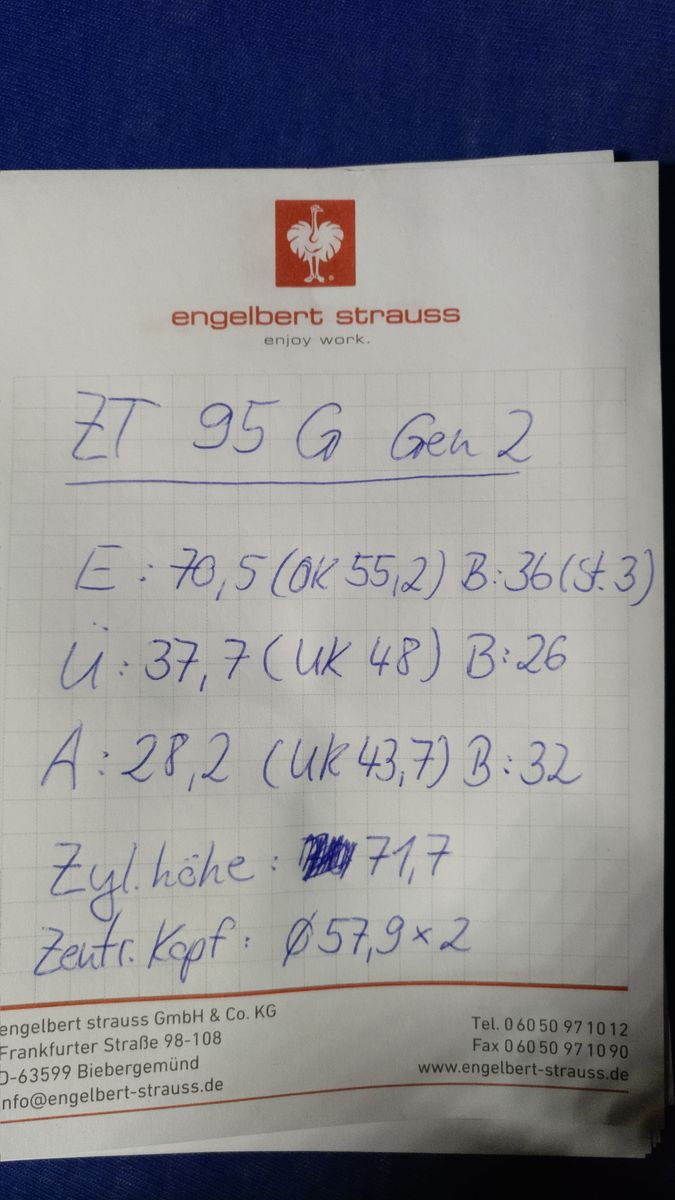 engelbert strauss
enjoy work.
ZT 95 G Gen 2
E: 70,5 (OK 55,2) B: 36 (St. 3)
Ü: 37,7 (UK 48) B: 26
A: 28,2 (UK 43,7) B: 32
Zyl. höhe: 71,7
Zentr. Kopf: Ø 57,9 × 2
engelbert strauss GmbH & Co. KG
Frankfurter Straße 98-108
D-63599 Biebergemünd
info@engelbert-strauss.de
Tel. 0 60 50 97 10 12
Fax 0 60 50 97 10 90
www.engelbert-strauss.de